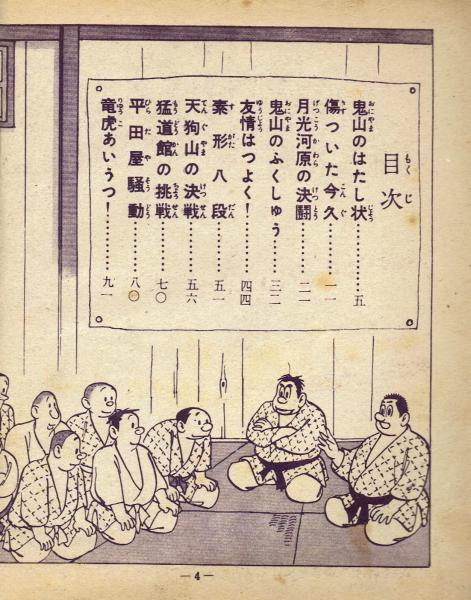 目次
鬼山のはたし状……五
傷ついた今久……一一
月光河原の決闘……二一
鬼山のふくしゅう……三二
友情はつよく！……四四
素形八段……五一
天狗山の決戦……五六
猛道館の挑戦……七〇
平田屋騒動……八〇
竜虎あいうつ！……九一
— 4 —